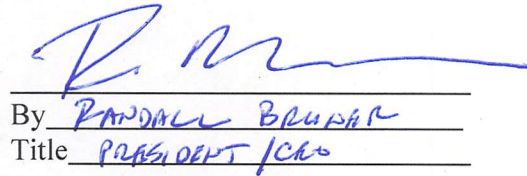 By RANDALL BRUNAR
Title PRESIDENT/CEO